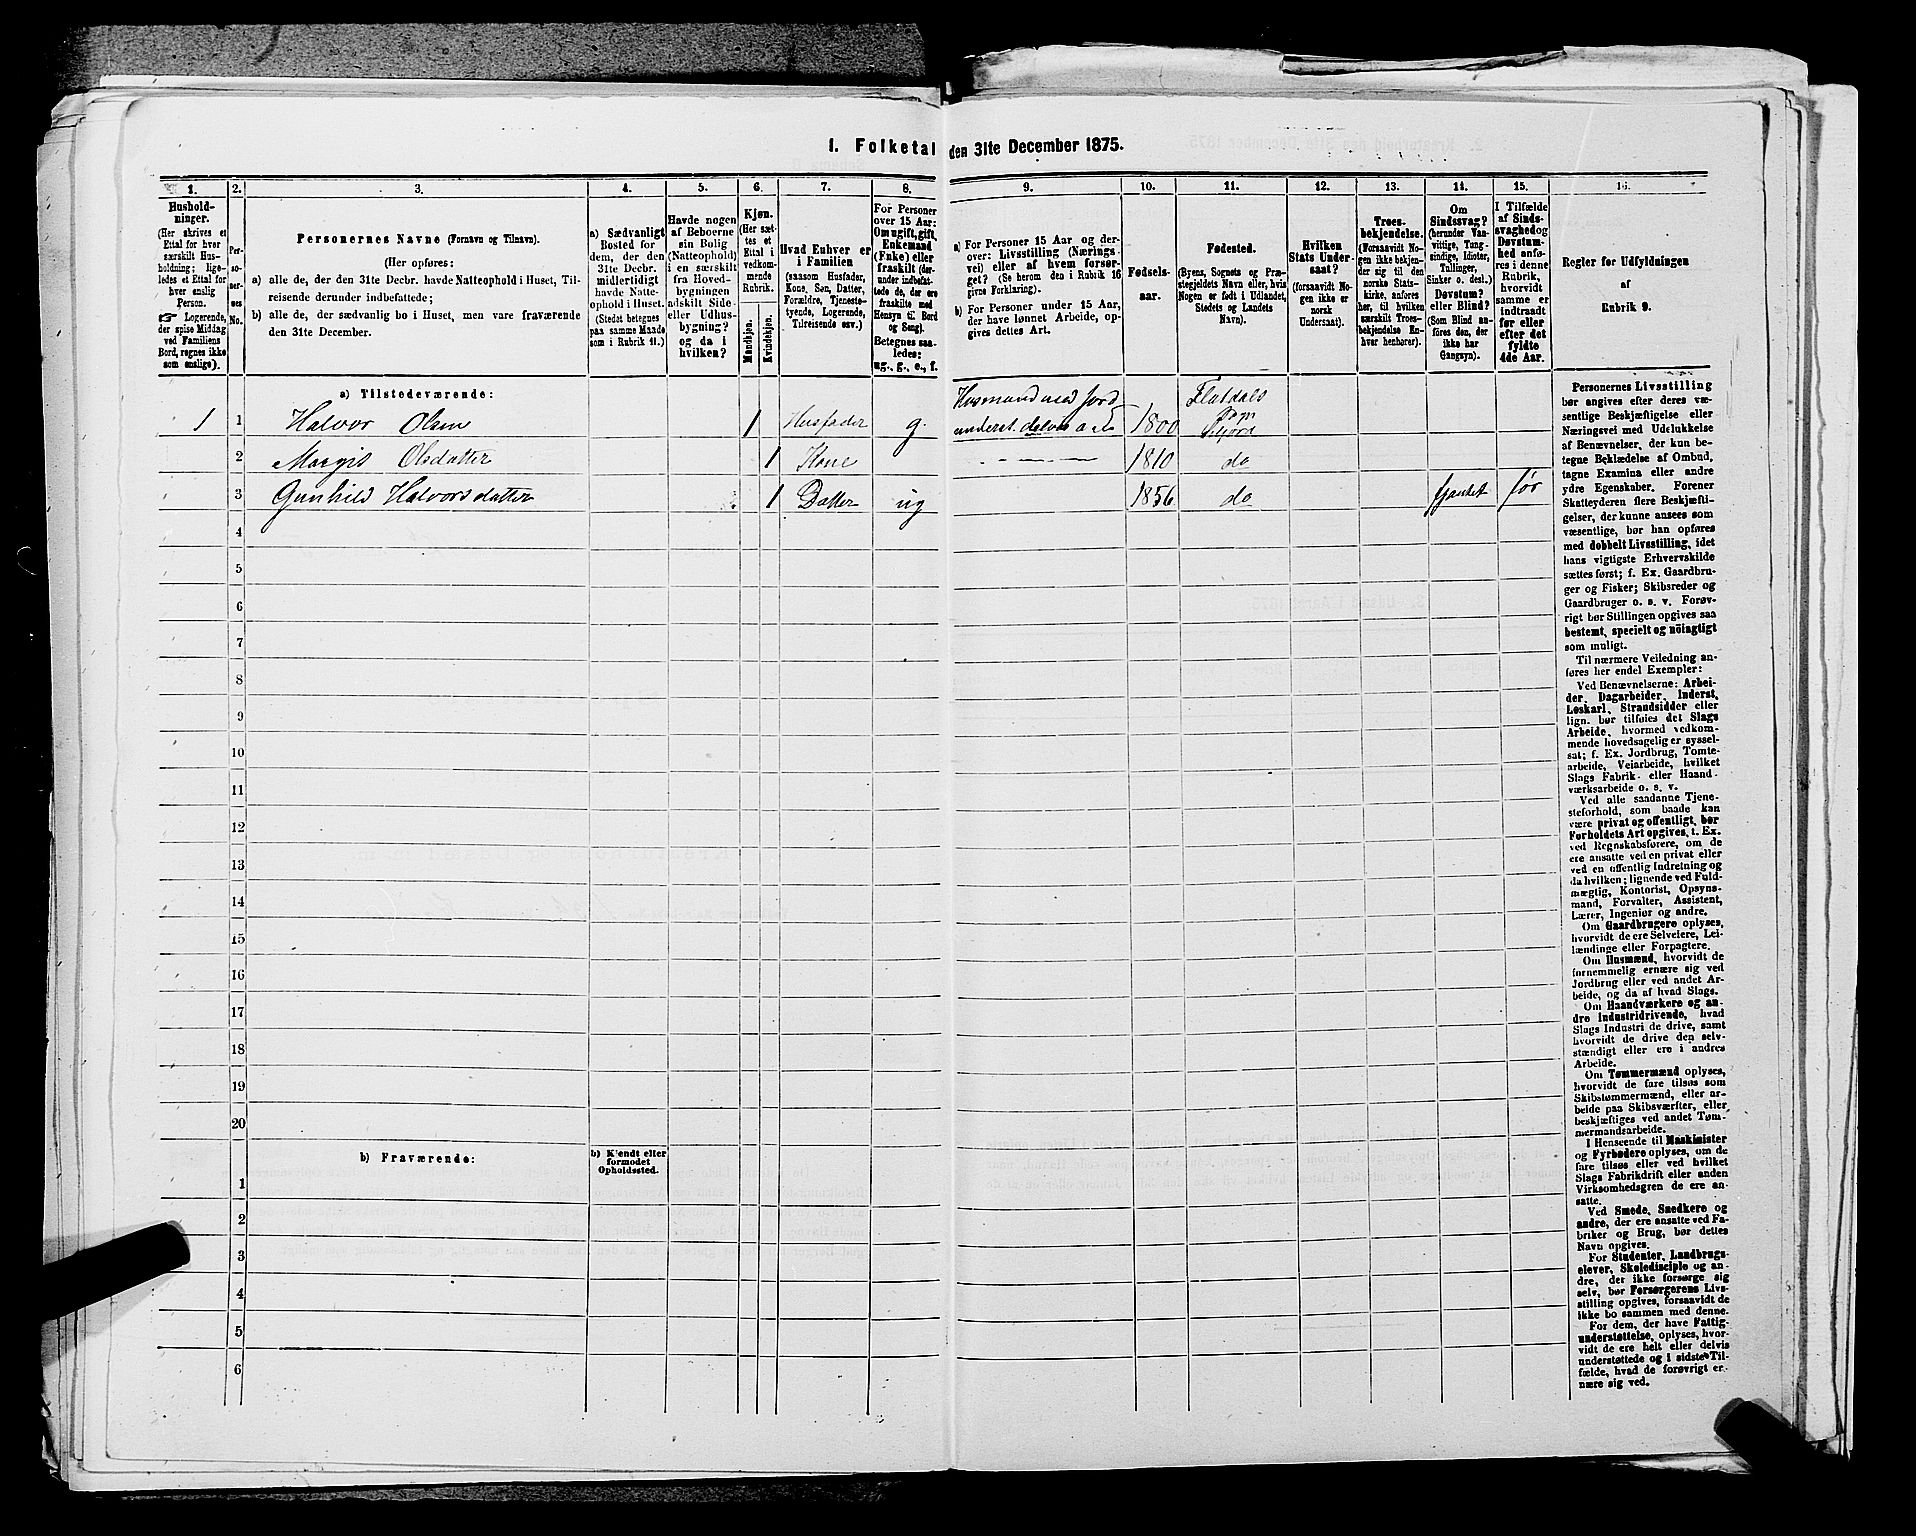 1. Folketal den 31te December 1875.
1. 2. 3. 4. 5. 6. 7. 8. 9. 10. 11. 12. 13. 14. 15. 16.
Hushold-
ninger.
(Her skrives et
Ettal for hver
særskilt Hus-
holdning; lige-
ledes et Ettal for
hver enslig
Person.
☞ Logerende,
der spise Middag
ved Familiens
Bord, regnes ikke
som enslige).
Per-
so-
ner-
nes
No.
Personernes Navne (Fornavn og Tilnavn).
(Her opføres:
a) alle de, der den 31te Decbr. havde Natteophold i Huset, Til-
reisende derunder indbefattede;
b) alle de, der sædvanlig bo i Huset, men vare fraværende
den 31te December.
a) Sædvanligt
Bosted for
dem, der den
31te Decbr.
midlertidigt
havde Natte-
ophold i Huset.
(Stedet betegnes
paa samme Maade
som i Rubrik 11.)
Havde nogen
af Beboerne
sin Bolig
(Natteophold)
i en særskilt
fra Hoved-
bygningen
adskilt Side-
eller Udhus-
bygning?
og da i
hvilken?
Kjøn.
(Her sæt-
tes et
Ettal i
vedkom-
mende
Rubrik.
Mandkjøn.
Kvindekjøn.
Hvad Enhver er
i Familien
(saasom Husfader,
Kone, Søn, Datter,
Forældre, Tjeneste-
tyende, Logerende,
Tilreisende osv.)
For Personer
over 15 Aar:
Om ugift, gift,
Enkemand
(Enke) eller
fraskilt (der-
under indbefat-
tede de, der ere
fraskilte med
Hensyn til Bord
og Seng).
Betegnes saa-
ledes:
ug., g., e., f.
a) For Personer 15 Aar og der-
over: Livsstilling (Nærings-
vei) eller af hvem forsør-
get? (Se herom den i Rubrik 16
givne Forklaring).
b) For Personer under 15 Aar,
der have lønnet Arbeide, op-
gives dettes Art.
Fødsels-
aar.
Fødested.
(Byens, Sognets og Præ-
stegjeldets Navn eller, hvis
Nogen er født i Udlandet,
Stedets og Landets
Navn).
Hvilken
Stats Under-
saat?
(forsaavidt No-
gen ikke er
norsk
Undersaat).
Troes-
bekjendelse.
(Forsaavidt No-
gen ikke bekjen-
der sig til den
norske Stats-
kirke, anføres
her, til hvilken
særskilt Troes-
bekjendelse En-
hver henhører).
Om
Sindssvag?
(herunder Van-
vittige, Tung-
sindige, Idioter,
Tullinger,
Sinker o. desl.)
Døvstum?
eller Blind?
(Som Blind an-
føres den, der
ikke har
Gangsyn).
I Tilfælde
af Sinds-
svaghed og
Døvstum-
hed anfø-
res i denne
Rubrik,
hvorvidt
samme er
indtraadt
før eller
efter det
fyldte
4de Aar.
Regler for Udfyldningen
af
Rubrik 9.
a) Tilstedeværende:
1 1 Halvor Olsen 1 Husfader g. Husmand med Jord underst. delvis 1800 Flatdals Sogn
2 Margit Olsdatter 1 Kone 1810 do
3 Gunhild Halvorsdatter 1 Datter ug 1856 do før
4
5
6
7
8
9
10
11
12
13
14
15
16
17
18
19
20
b) Fraværende:
b) Kjendt eller
formodet
Opholdssted.
1
2
3
4
5
6
Personernes Livsstilling
bør angives efter deres væ-
sentlige Beskjæftigelse eller
Næringsvei med Udelukkelse
af Benævnelser, der kun be-
tegne Beklædelse af Ombud,
tagne Examina eller andre
ydre Egenskaber. Forener
Skatteyderen flere Beskjæfti-
gelser, der kunne ansees som
væsentlige, bør han opføres
med dobbelt Livsstilling, idet
hans vigtigste Erhvervskilde
sættes først; f. Ex. Gaardbru-
ger og Fisker; Skibsreder og
Gaardbruger o. s. v. Forøv-
rigt bør Stillingen opgives saa
bestemt, specielt og nöiagtigt
som muligt.
Til nærmere Veiledning an-
føres her endel Exempler:
Ved Benævnelserne: Arbei-
der, Dagarbeider, Inderst,
Løskarl, Strandsidder eller
lign. bør tilføies det Slags
Arbeide, hvormed vedkom-
mende hovedsagelig er syssel-
sat; f. Ex. Jordbrug, Tomte-
arbeide, Veiarbeide, hvilket
Slags Fabrik- eller Haand-
værksarbeide o. s. v.
Ved alle saadanne Tjene-
steforhold, som baade kan
være privat og offentligt, bør
Forholdets Art opgives, t. Ex.
ved Regnskabsførere, om de
ere ansatte ved en privat eller
ved en offentlig Indretning og
da hvilken; lignende ved Fuld-
mægtig, Kontorist, Opsyns-
mand, Forvalter, Assistent,
Lærer, Ingeniør og andre.
Om Gaardbrugere oplyses,
hvorvidt de ere Selveiere, Lei-
lændinge eller Forpagtere.
Om Husmænd, hvorvidt de
fornemmelig ernære sig ved
Jordbrug eller ved andet Ar-
beide, og da af hvad Slags.
Om Haandværkere og an-
dre Industridrivende, hvad
Slags Industri de drive, samt
hvorvidt de drive den selv-
stændigt eller ere i andres
Arbeide.
Om Tømmermænd oplyses,
hvorvidt de fare tilsøs som
Skibstømmermænd, eller ar-
beide paa Skibsværfter, eller
beskjæftiges ved andet Tøm-
mermandsarbeide.
I Henseende til Maskinister
og Fyrbødere oplyses, om de
fare tilsøs eller ved hvilket
Slags Fabrikdrift eller anden
Virksomhedsgren de ere an-
satte.
Ved Smede, Snedkere og
andre, der ere ansatte ved Fa-
briker og Brug, bør dettes
Navn opgives.
For Studenter, Landbrugs-
elever, Skoledisciple og an-
dre, der ikke forsørge sig
selv, bør Forsørgerens Livs-
stilling opgives, forsaavidt de
ikke bo sammen med denne.
For dem, der have Fattig-
understøttelse, oplyses, hvor-
vidt de ere helt eller delvis
understøttede og i sidste Til-
fælde, hvad de forøvrigt er-
nære sig ved.